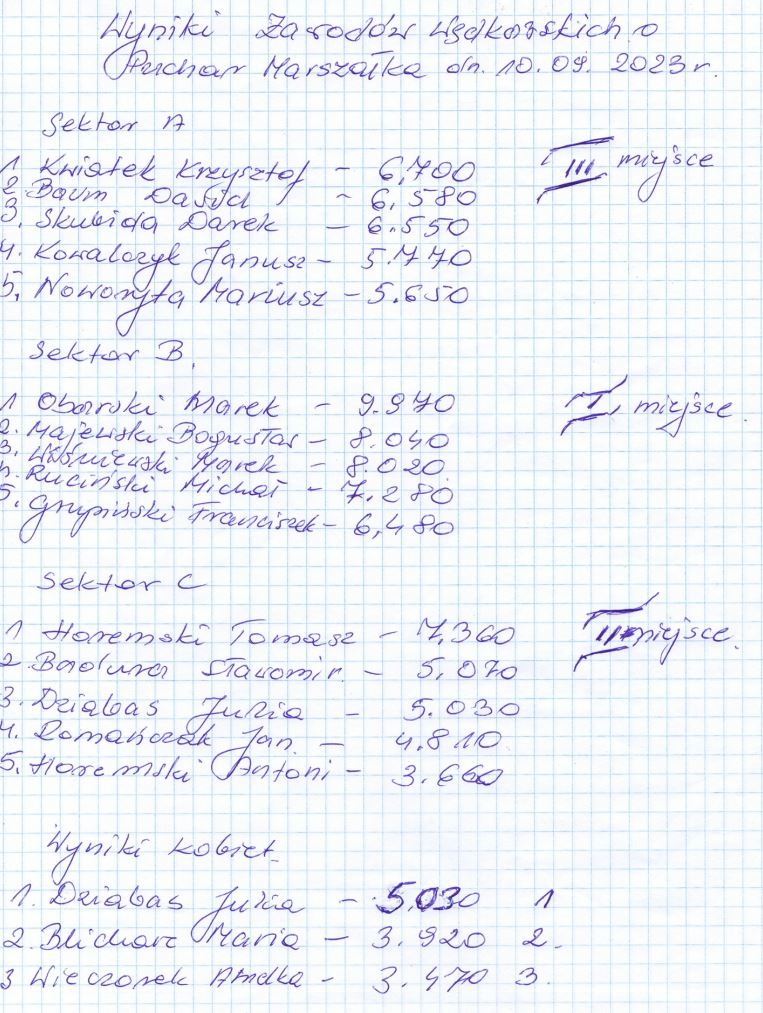 Wyniki Zawodów Wędkarskich o
Puchar Marszałka dn. 10.09. 2023 r.
Sektor A
1 Kwiatek Krzysztof - 6,700 III miejsce
2. Baum Dawid - 6.580
3. Skubida Darek - 6.550
4. Kowalczyk Janusz - 5.770
5. Noworyta Mariusz - 5.650
Sektor B.
1 Oborski Marek - 9.970 I miejsce.
2. Majewski Bogusław - 8.040
3. Wiśniewski Marek - 8.020
4. Ruciński Michał - 7.280
5. Grupiński Franciszek - 6,480
Sektor C
1 Horemski Tomasz - 7,360 II miejsce.
2. Badura Sławomir. - 5.070
3. Dziabas Julia - 5.030
4. Romańczak Jan. - 4.810
5. Horemski Antoni - 3.660
Wyniki kobiet.
1. Dziabas Julia - 5.030 1
2. Blicharz Maria - 3.920 2.
3 Wieczorek - 3.470 3.